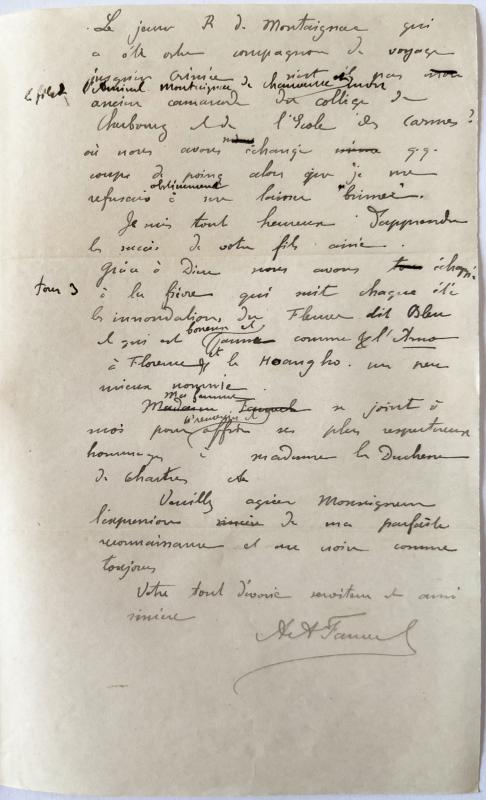 Le jeune R de Montaignac qui
a été votre compagnon de voyage
jusqu'en Crimée n'est il pas
le fils de l'Amiral Montaignac de Chauvance mon
ancien camarade du collège de
Cherbourg et de l'Ecole des Carmes ?
où nous avons échangé qq.
coups de poing alors que je me
refusais obstinément à me laisser "brimer".
Je suis tout heureux d'apprendre
les succès de votre fils ainé.
Grâce à Dieu nous avons tous 3 échappé
à la fièvre qui suit chaque été
les innondations du Fleuve dit Bleu
et qui est boueux et jaune comme l'Arno
à Florence et le Hoangho. un peu
mieux nommé.
Ma femme se joint à
moi pour offrir ses plus respectueux
hommages à madame la Duchesse
de Chartres
Veuillez agréer Monseigneur
l'expression sincère de ma parfaite
reconnaissance et me croire comme
toujours
Votre tout dévoué serviteur et ami
sincère